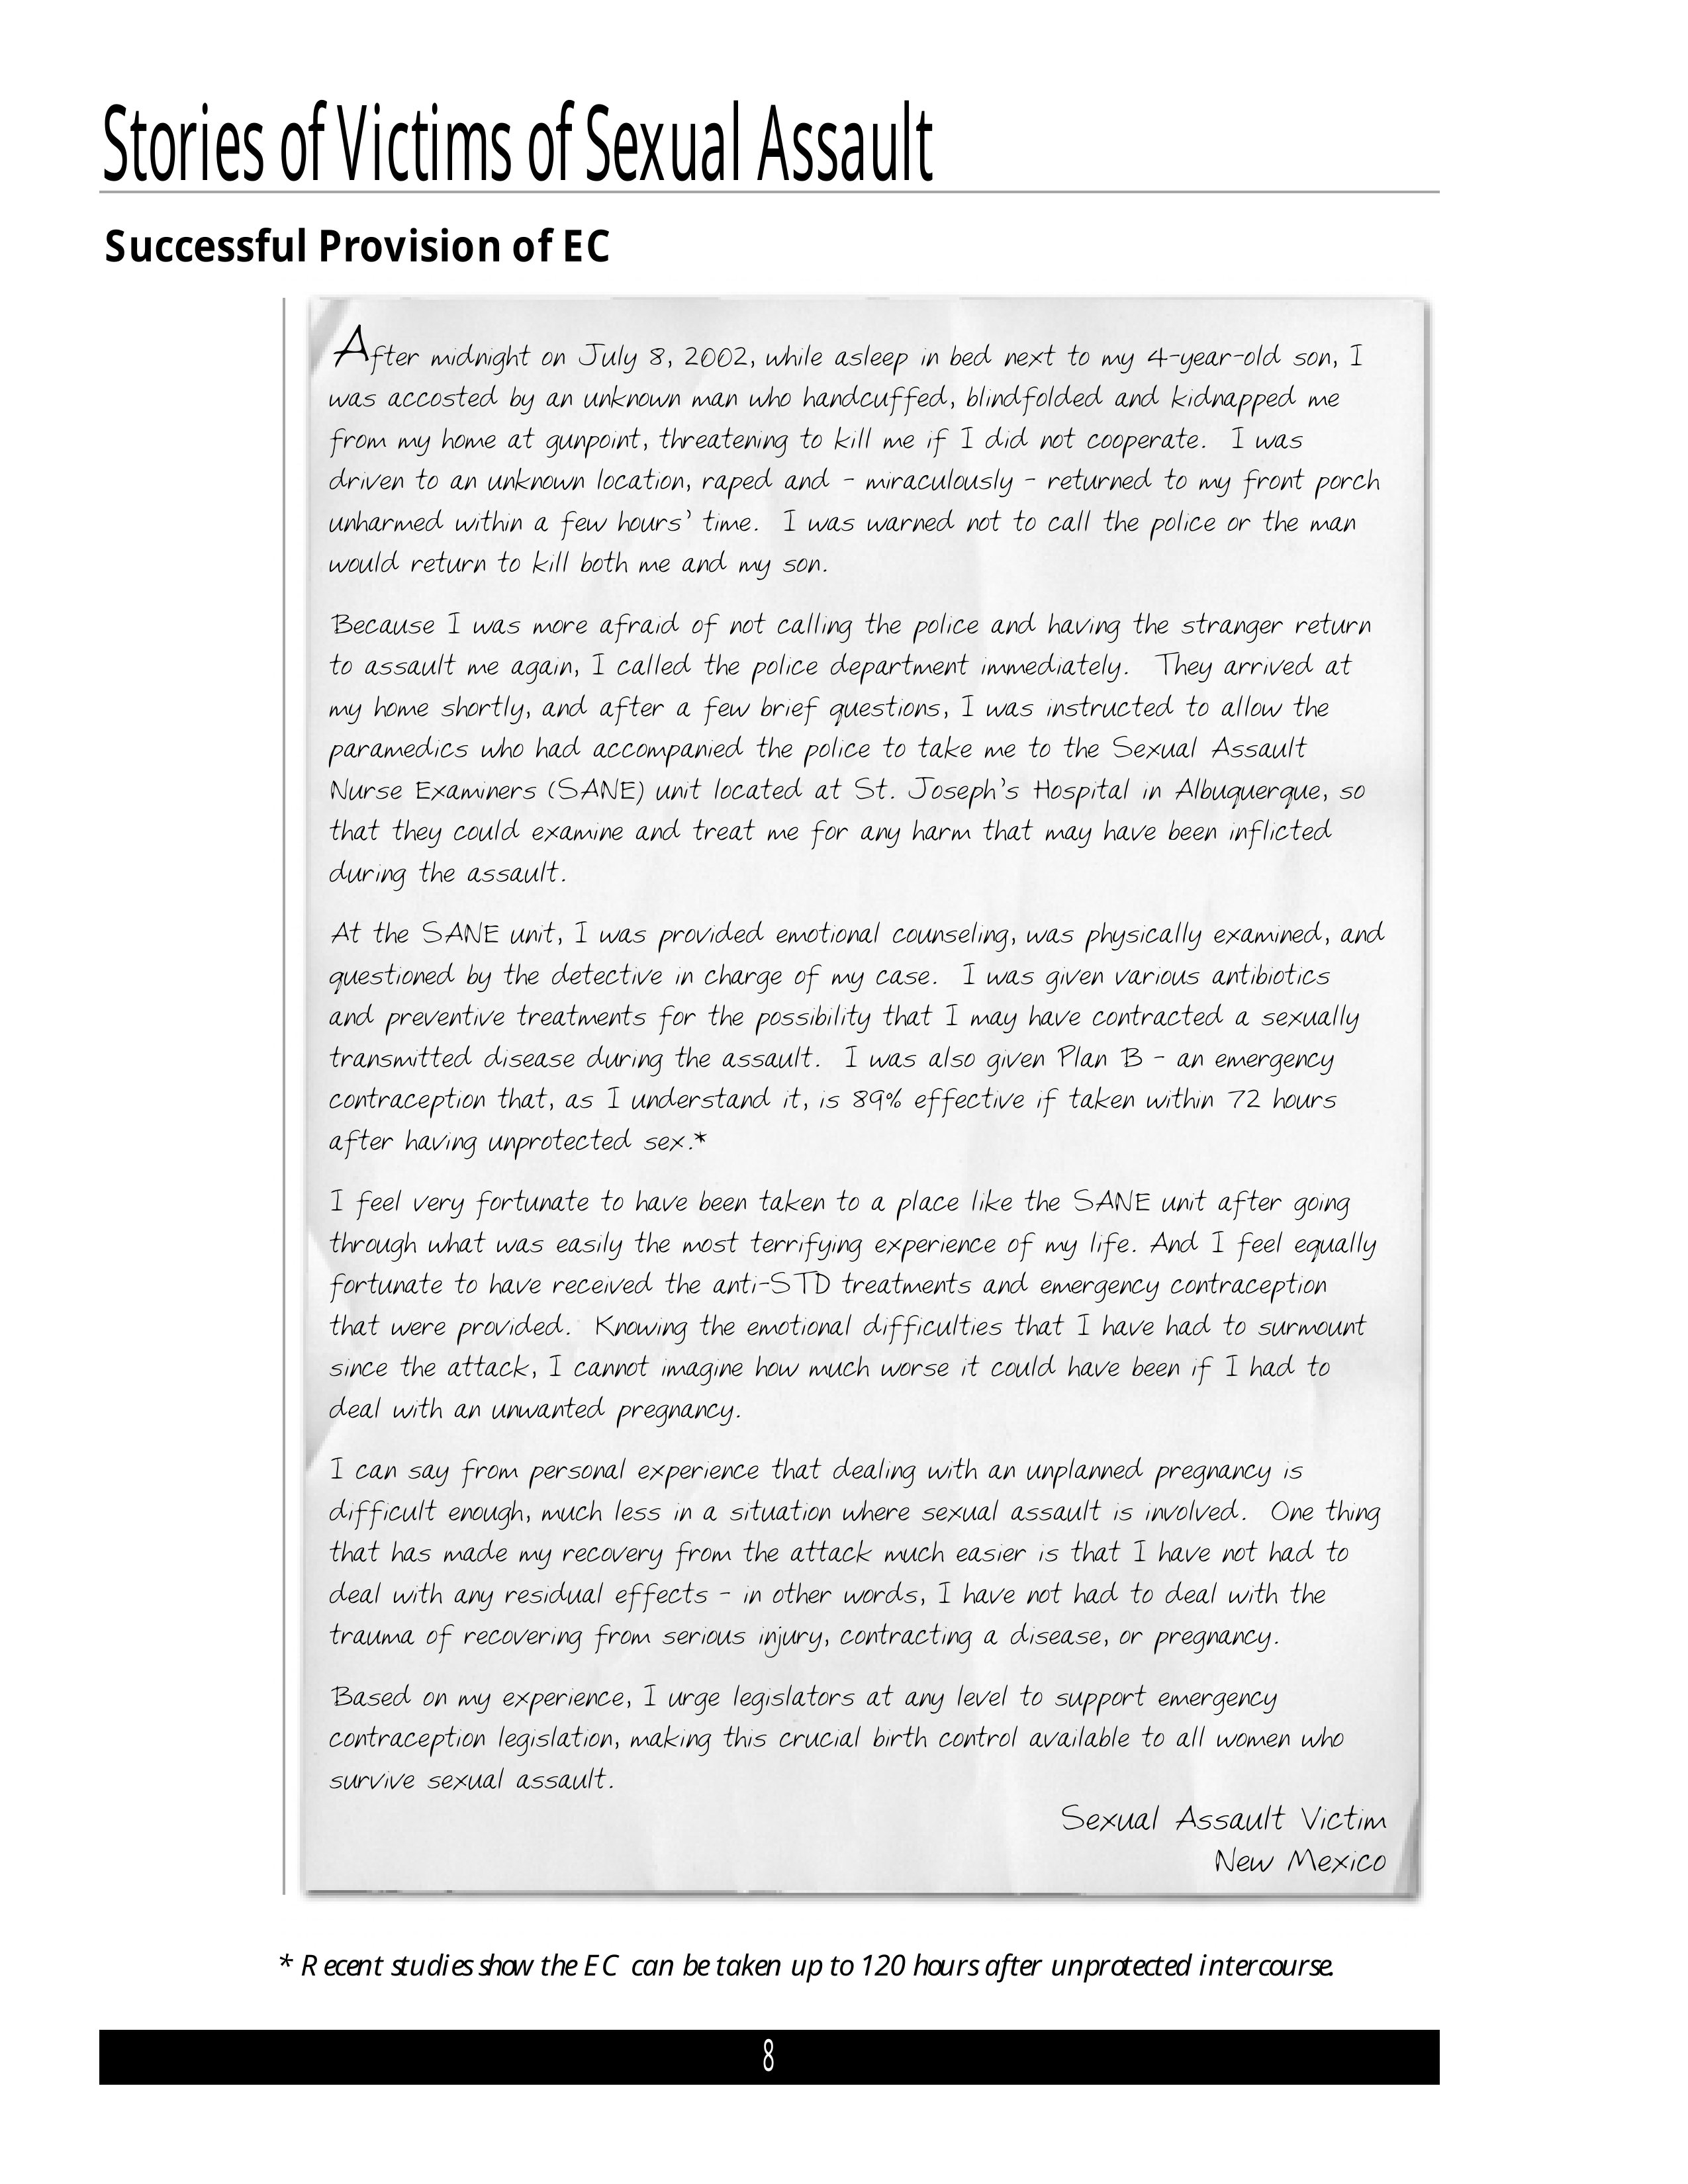 Stories of Victims of Sexual Assault
Successful Provision of EC
After midnight on July 8, 2002, while asleep in bed next to my 4-year-old son, I
was accosted by an unknown man who handcuffed, blindfolded and kidnapped me
from my home at gunpoint, threatening to kill me if I did not cooperate. I was
driven to an unknown location, raped and - miraculously - returned to my front porch
unharmed within a few hours' time. I was warned not to call the police or the man
would return to kill both me and my son.
Because I was more afraid of not calling the police and having the stranger return
to assault me again, I called the police department immediately. They arrived at
my home shortly, and after a few brief questions, I was instructed to allow the
paramedics who had accompanied the police to take me to the Sexual Assault
Nurse Examiners (SANE) unit located at St. Joseph's Hospital in Albuquerque, so
that they could examine and treat me for any harm that may have been inflicted
during the assault.
At the SANE unit, I was provided emotional counseling, was physically examined, and
questioned by the detective in charge of my case. I was given various antibiotics
and preventive treatments for the possibility that I may have contracted a sexually
transmitted disease during the assault. I was also given Plan B - an emergency
contraception that, as I understand it, is 89% effective if taken within 72 hours
after having unprotected sex.*
I feel very fortunate to have been taken to a place like the SANE unit after going
through what was easily the most terrifying experience of my life. And I feel equally
fortunate to have received the anti-STD treatments and emergency contraception
that were provided. Knowing the emotional difficulties that I have had to surmount
since the attack, I cannot imagine how much worse it could have been if I had to
deal with an unwanted pregnancy.
I can say from personal experience that dealing with an unplanned pregnancy is
difficult enough, much less in a situation where sexual assault is involved. One thing
that has made my recovery from the attack much easier is that I have not had to
deal with any residual effects - in other words, I have not had to deal with the
trauma of recovering from serious injury, contracting a disease, or pregnancy.
Based on my experience, I urge legislators at any level to support emergency
contraception legislation, making this crucial birth control available to all women who
survive sexual assault.
Sexual Assault Victim
New Mexico
* Recent studies show the EC can be taken up to 120 hours after unprotected intercourse.
8